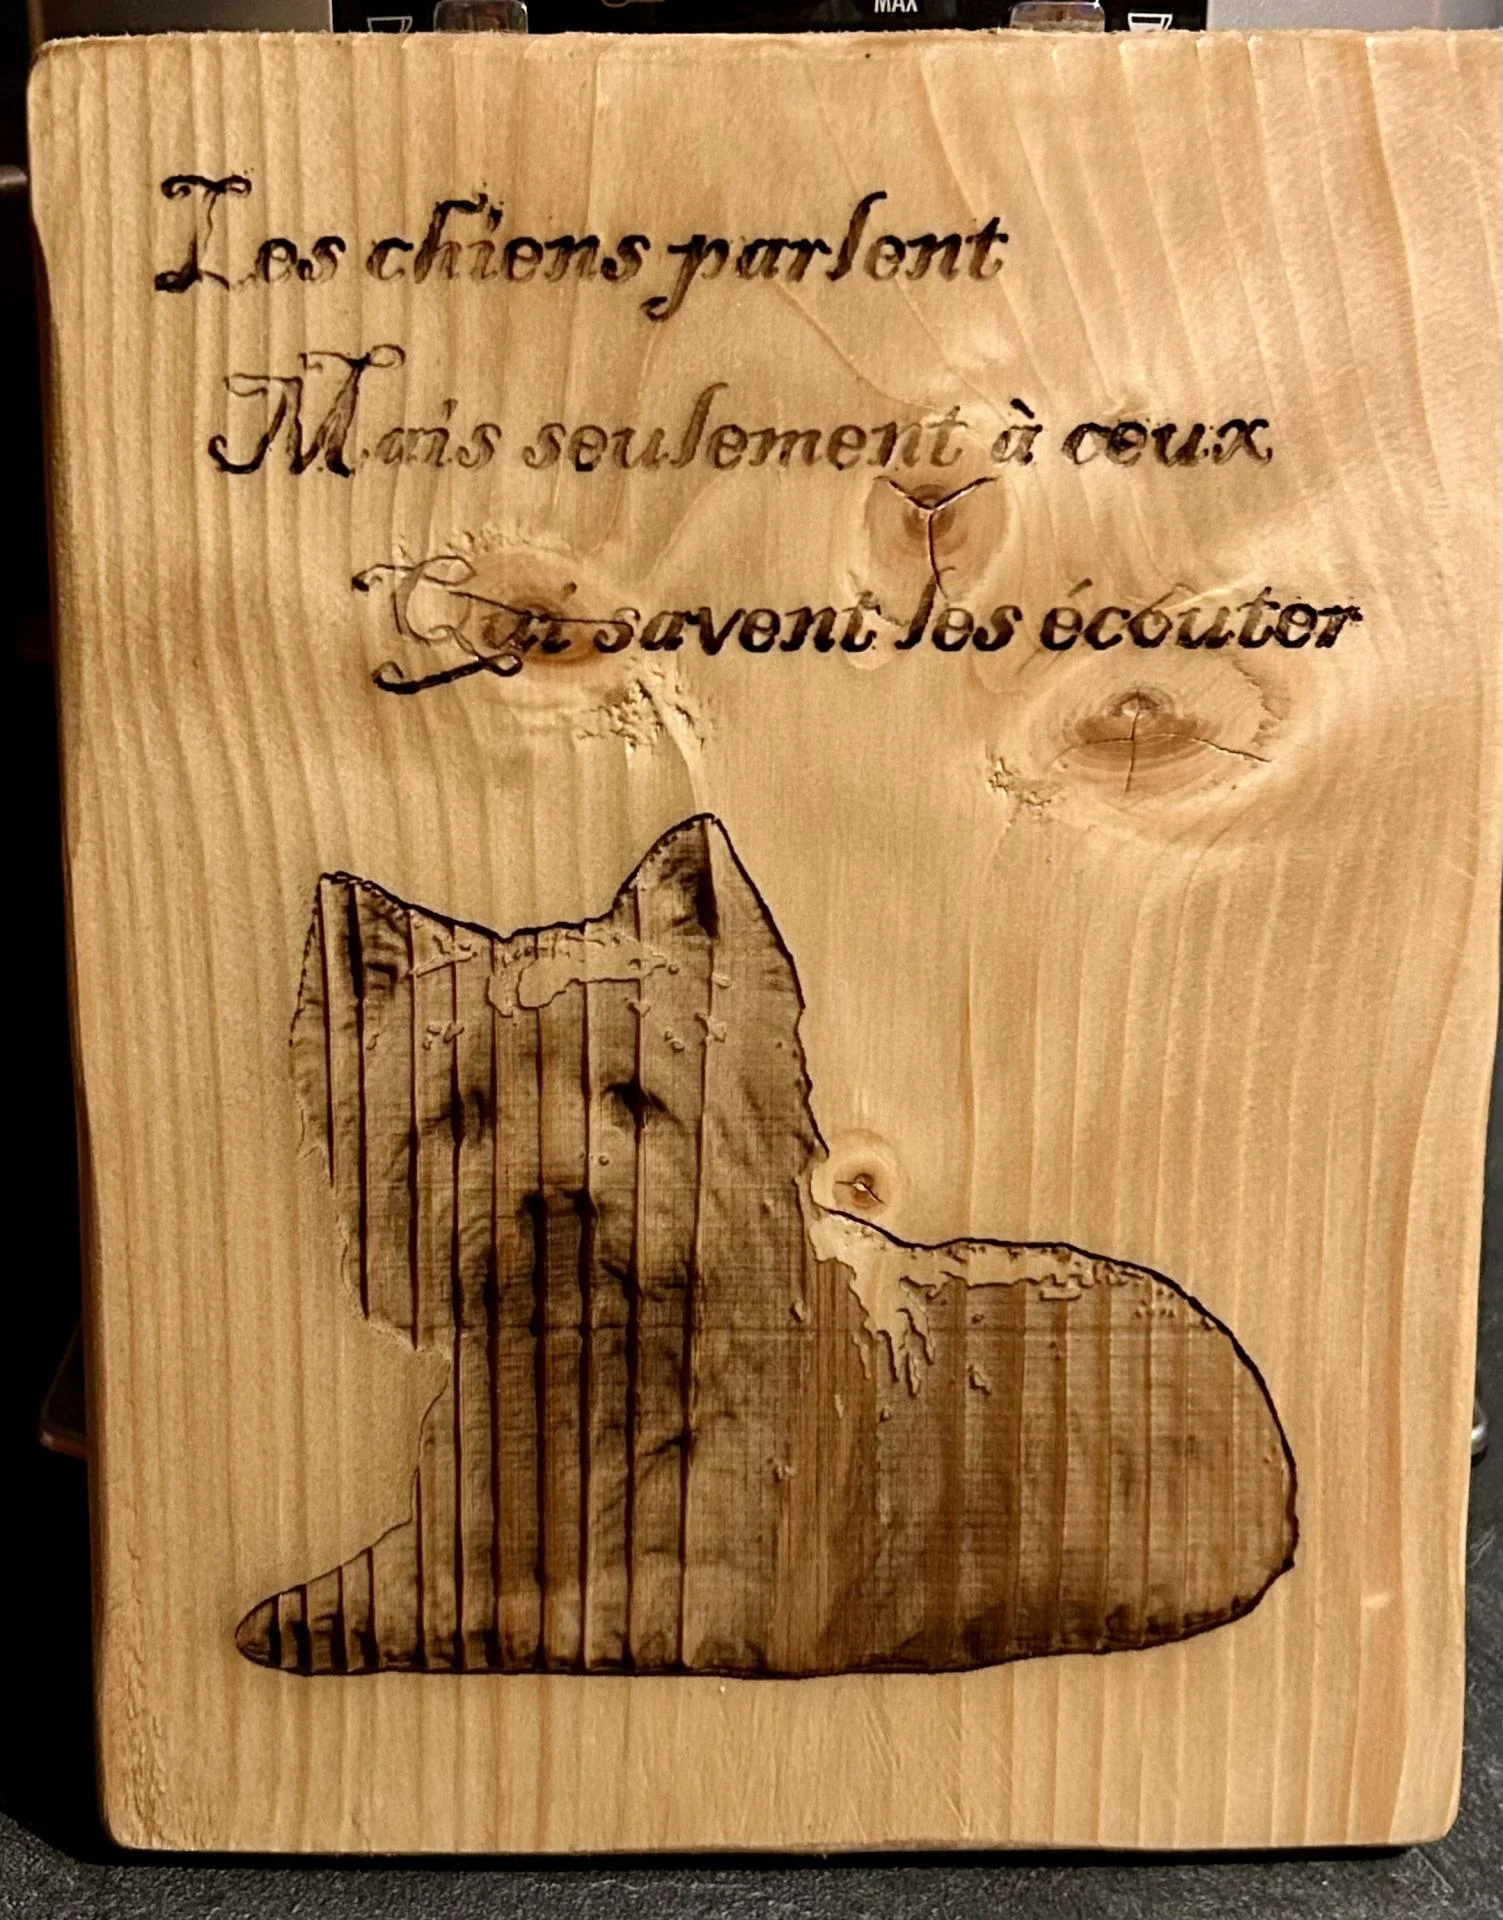 MAX
Les chiens parlent
Mais seulement à ceux
Qui savent les écouter